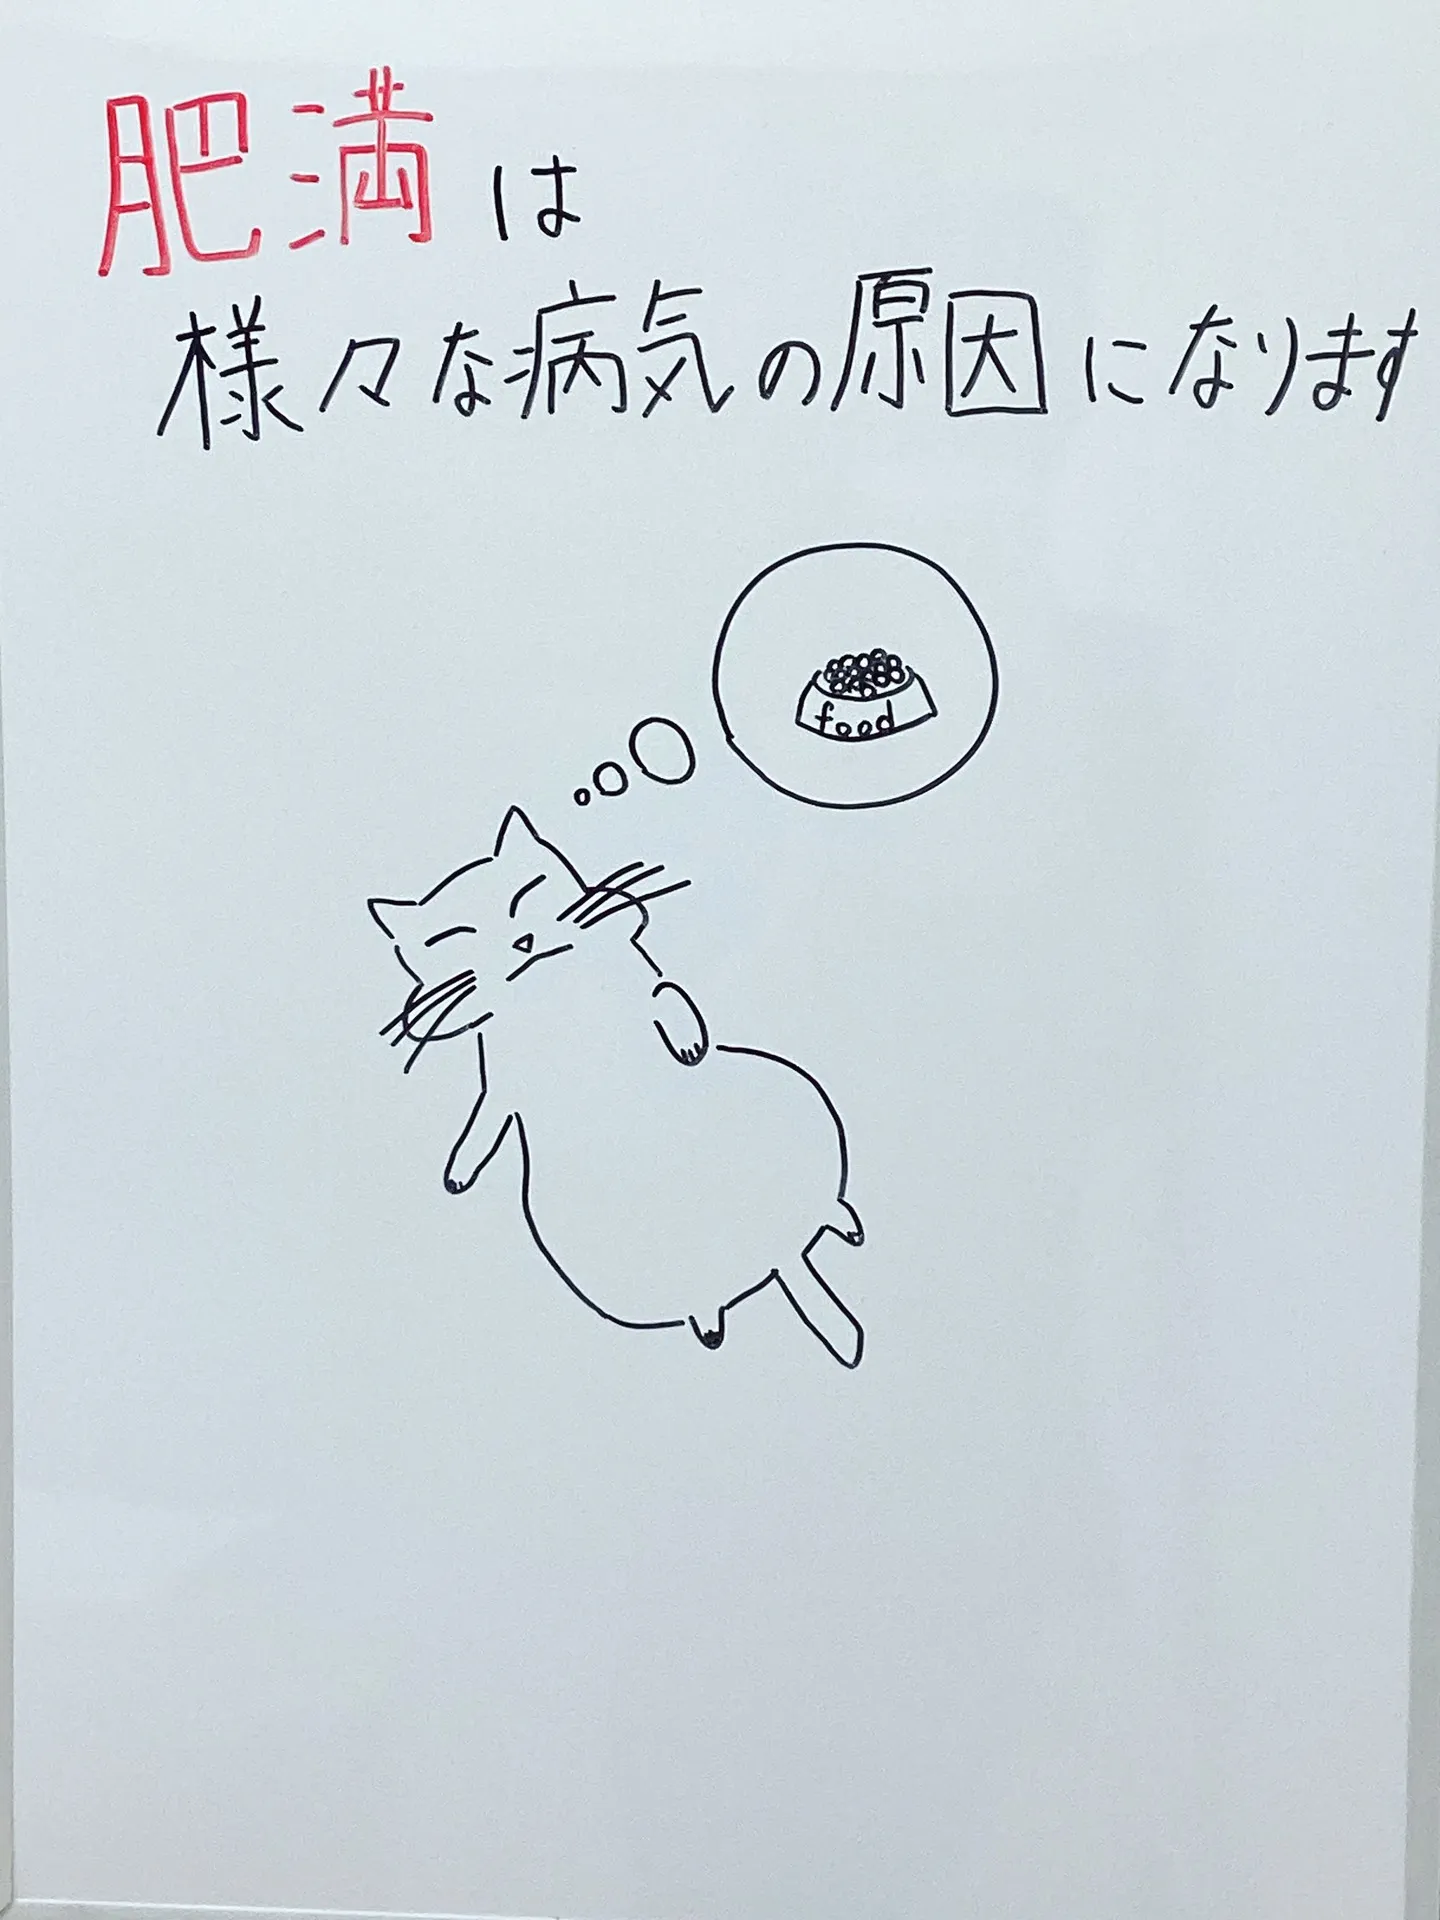 肥満は
様々な病気の原因になります
food